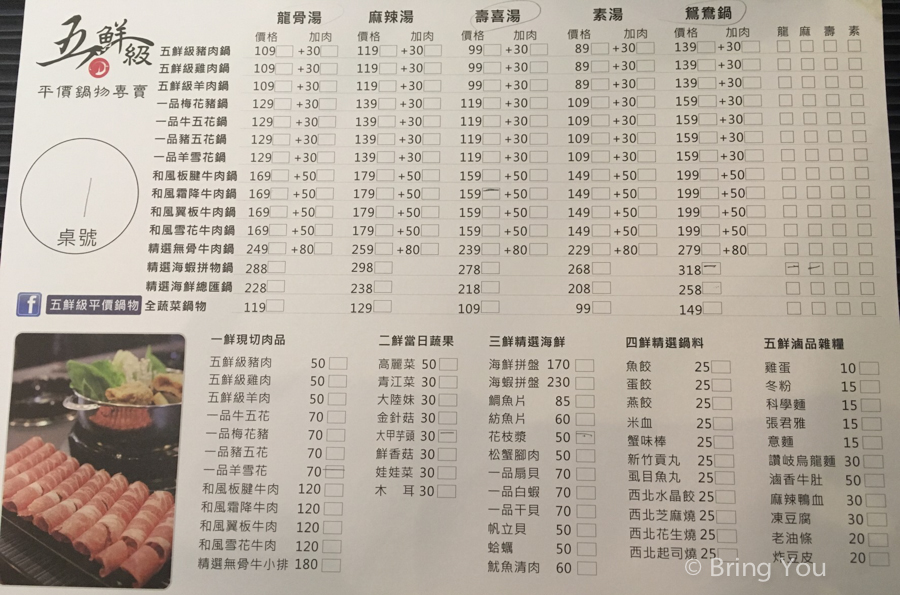 五鮮級
平價鍋物專賣
桌號
五鮮級平價鍋物
龍骨湯 麻辣湯 壽喜湯 素湯 鴛鴦鍋
價格 加肉 價格 加肉 價格 加肉 價格 加肉 價格 加肉 龍 麻 壽 素
五鮮級豬肉鍋 109 +30 119 +30 99 +30 89 +30 139 +30
五鮮級雞肉鍋 109 +30 119 +30 99 +30 89 +30 139 +30
五鮮級羊肉鍋 109 +30 119 +30 99 +30 89 +30 139 +30
一品梅花豬鍋 129 +30 139 +30 119 +30 109 +30 159 +30
一品牛五花鍋 129 +30 139 +30 119 +30 109 +30 159 +30
一品豬五花鍋 129 +30 139 +30 119 +30 109 +30 159 +30
一品羊雪花鍋 129 +30 139 +30 119 +30 109 +30 159 +30
和風板腱牛肉鍋 169 +50 179 +50 159 +50 149 +50 199 +50
和風霜降牛肉鍋 169 +50 179 +50 159 +50 149 +50 199 +50
和風翼板牛肉鍋 169 +50 179 +50 159 +50 149 +50 199 +50
和風雪花牛肉鍋 169 +50 179 +50 159 +50 149 +50 199 +50
精選無骨牛肉鍋 249 +80 259 +80 239 +80 229 +80 279 +80
精選海蝦拼物鍋 288 298 278 268 318
精選海鮮總匯鍋 228 238 218 208 258
全蔬菜鍋物 119 129 109 99 149
一鮮現切肉品
五鮮級豬肉 50
五鮮級雞肉 50
五鮮級羊肉 50
一品牛五花 70
一品梅花豬 70
一品豬五花 70
一品羊雪花 70
和風板腱牛肉 120
和風霜降牛肉 120
和風翼板牛肉 120
和風雪花牛肉 120
精選無骨牛小排 180
二鮮當日蔬果
高麗菜 50
青江菜 30
大陸妹 30
金針菇 30
大甲芋頭 30
鮮香菇 30
娃娃菜 30
木耳 30
三鮮精選海鮮
海鮮拼盤 170
海蝦拼盤 230
鯛魚片 85
魴魚片 60
花枝漿 50
松蟹腳肉 50
一品扇貝 70
一品白蝦 70
一品干貝 70
帆立貝 50
蛤蠣 50
魷魚清肉 60
四鮮精選鍋料
魚餃 25
蛋餃 25
燕餃 25
米血 25
蟹味棒 25
新竹貢丸 25
虱目魚丸 25
西北水晶餃 25
西北芝麻燒 25
西北花生燒 25
西北起司燒 25
五鮮滷品雜糧
雞蛋 10
冬粉 15
科學麵 15
張君雅 15
意麵 15
讚岐烏龍麵 30
滷香牛肚 50
麻辣鴨血 30
凍豆腐 30
老油條 20
炸豆皮 20
© Bring You